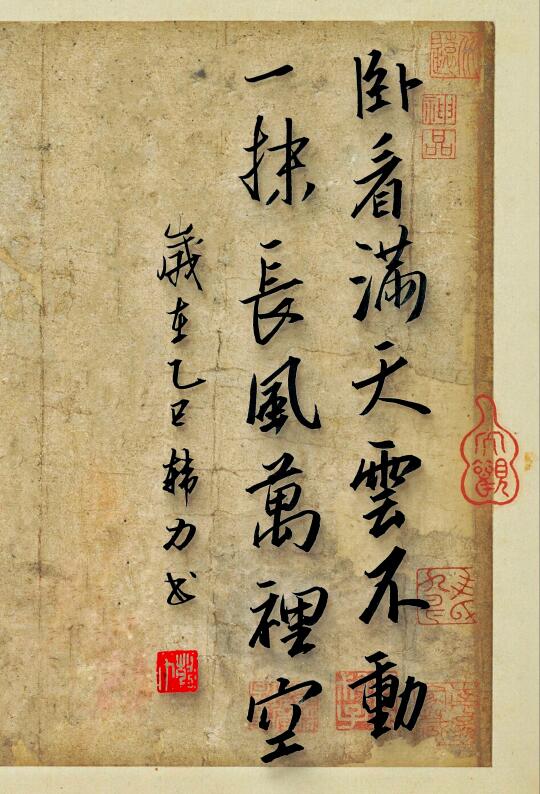 卧看滿天雲不動
一抹長風萬裡空
歲在乙巳韩力书
神品
大觀